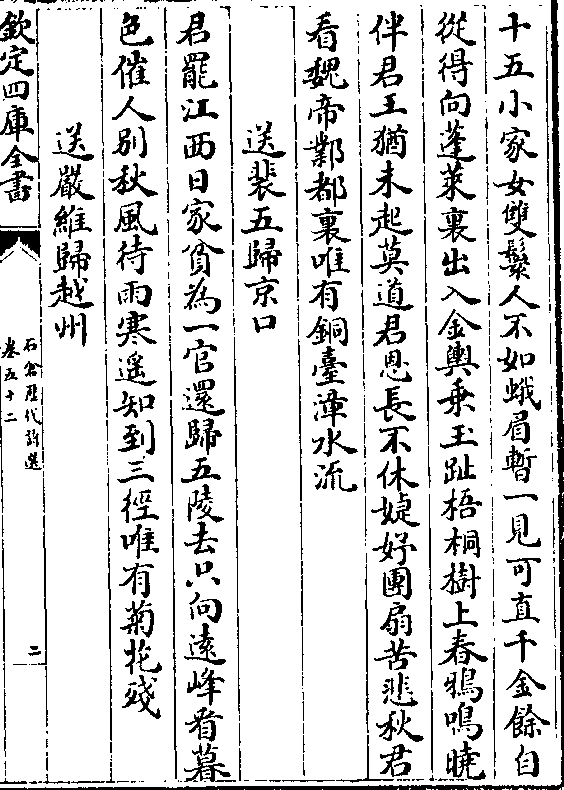 十五小家女雙鬟人不如蛾眉暫一見可直千金餘自
從得向蓬萊裏出入金輿乗玉趾梧桐樹上春鴉鳴曉
伴君王猶未起莫道君恩長不休婕妤團扇苦悲秋君
看魏帝鄴都裏唯有銅臺漳水流
送裴五歸京口
君罷江西日家貧為一官還歸五陵去只向逺峰看暮
色催人别秋風待雨寒遥知到三徑唯有菊花殘
送嚴維歸越州
欽定四庫全書
石倉歴代詩選
卷五十二
二